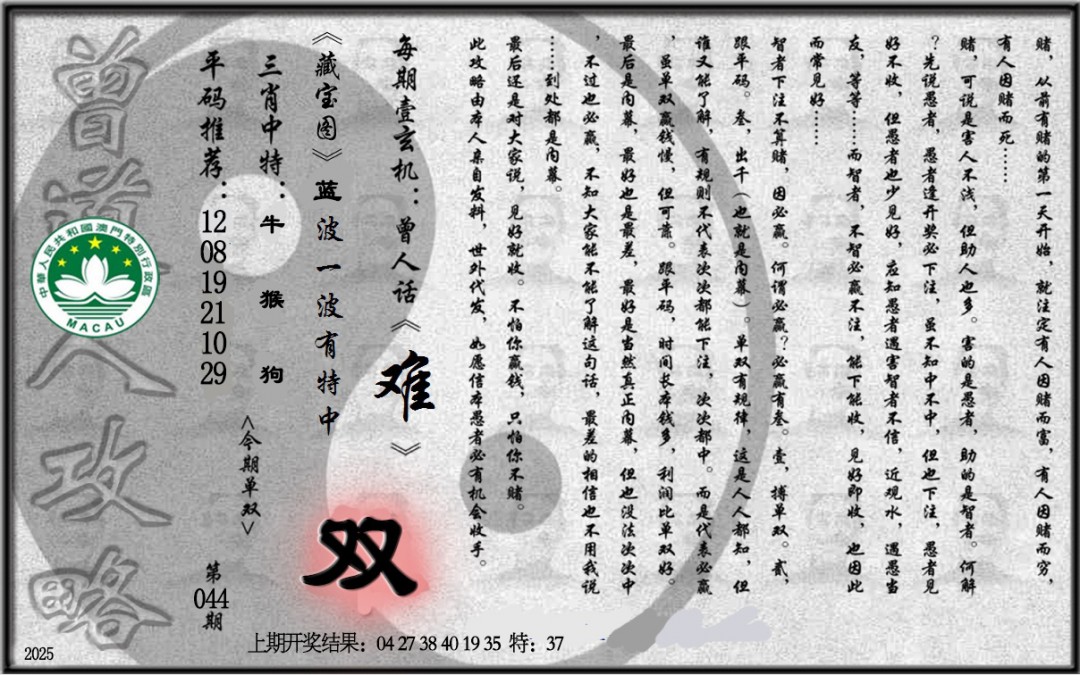 赌，从前有赌的第一天开始，就注定有人因赌而富，有人因赌而穷，
有人因赌而死……
赌，可说是害人不浅，但助人也多。害的是愚者，助的是智者。何解
？先说愚者，愚者逢开奖必下注，虽不知中不中，但也下注，愚者见
好不收，但愚者也少见好，应知愚者遇害智者不信，近观水，遇愚当
友，等等……而智者，不智必赢不注，能下能收，见好即收，也因此
而常见好……
智者下注不算赌，因必赢。何谓必赢？必赢有叁。壹，搏单双。贰，
跟平码。叁，出千（也就是内幕）。单双有规律，这是人人都知，但
谁又能了解，有规则不代表次次都能下注，次次都中。而是代表必赢
，虽单双赢钱慢，但可靠。跟平码，时间长本钱多，利润比单双好。
最后是内幕，最好也是最差，最好是当然真正内幕，但也没法次次中
，不过也必赢，不知大家能不能了解这句话，最差的相信也不用我说
……到处都是内幕。
最后还是对大家说，见好就收。不怕你赢钱，只怕你不赌。
此攻略由本人亲自发料，世外代发，如愿信本愚者必有机会收手。
每期壹玄机：曾人话《难》
《藏宝图》蓝波一波有特中
三肖中特：牛 猴 狗
<今期单双>
双
平码推荐：12 08 19 21 10 29
第044期
曾道人攻略
中華人民共和國澳門特別行政區
MACAU
上期开奖结果：04 27 38 40 19 35 特：37
2025